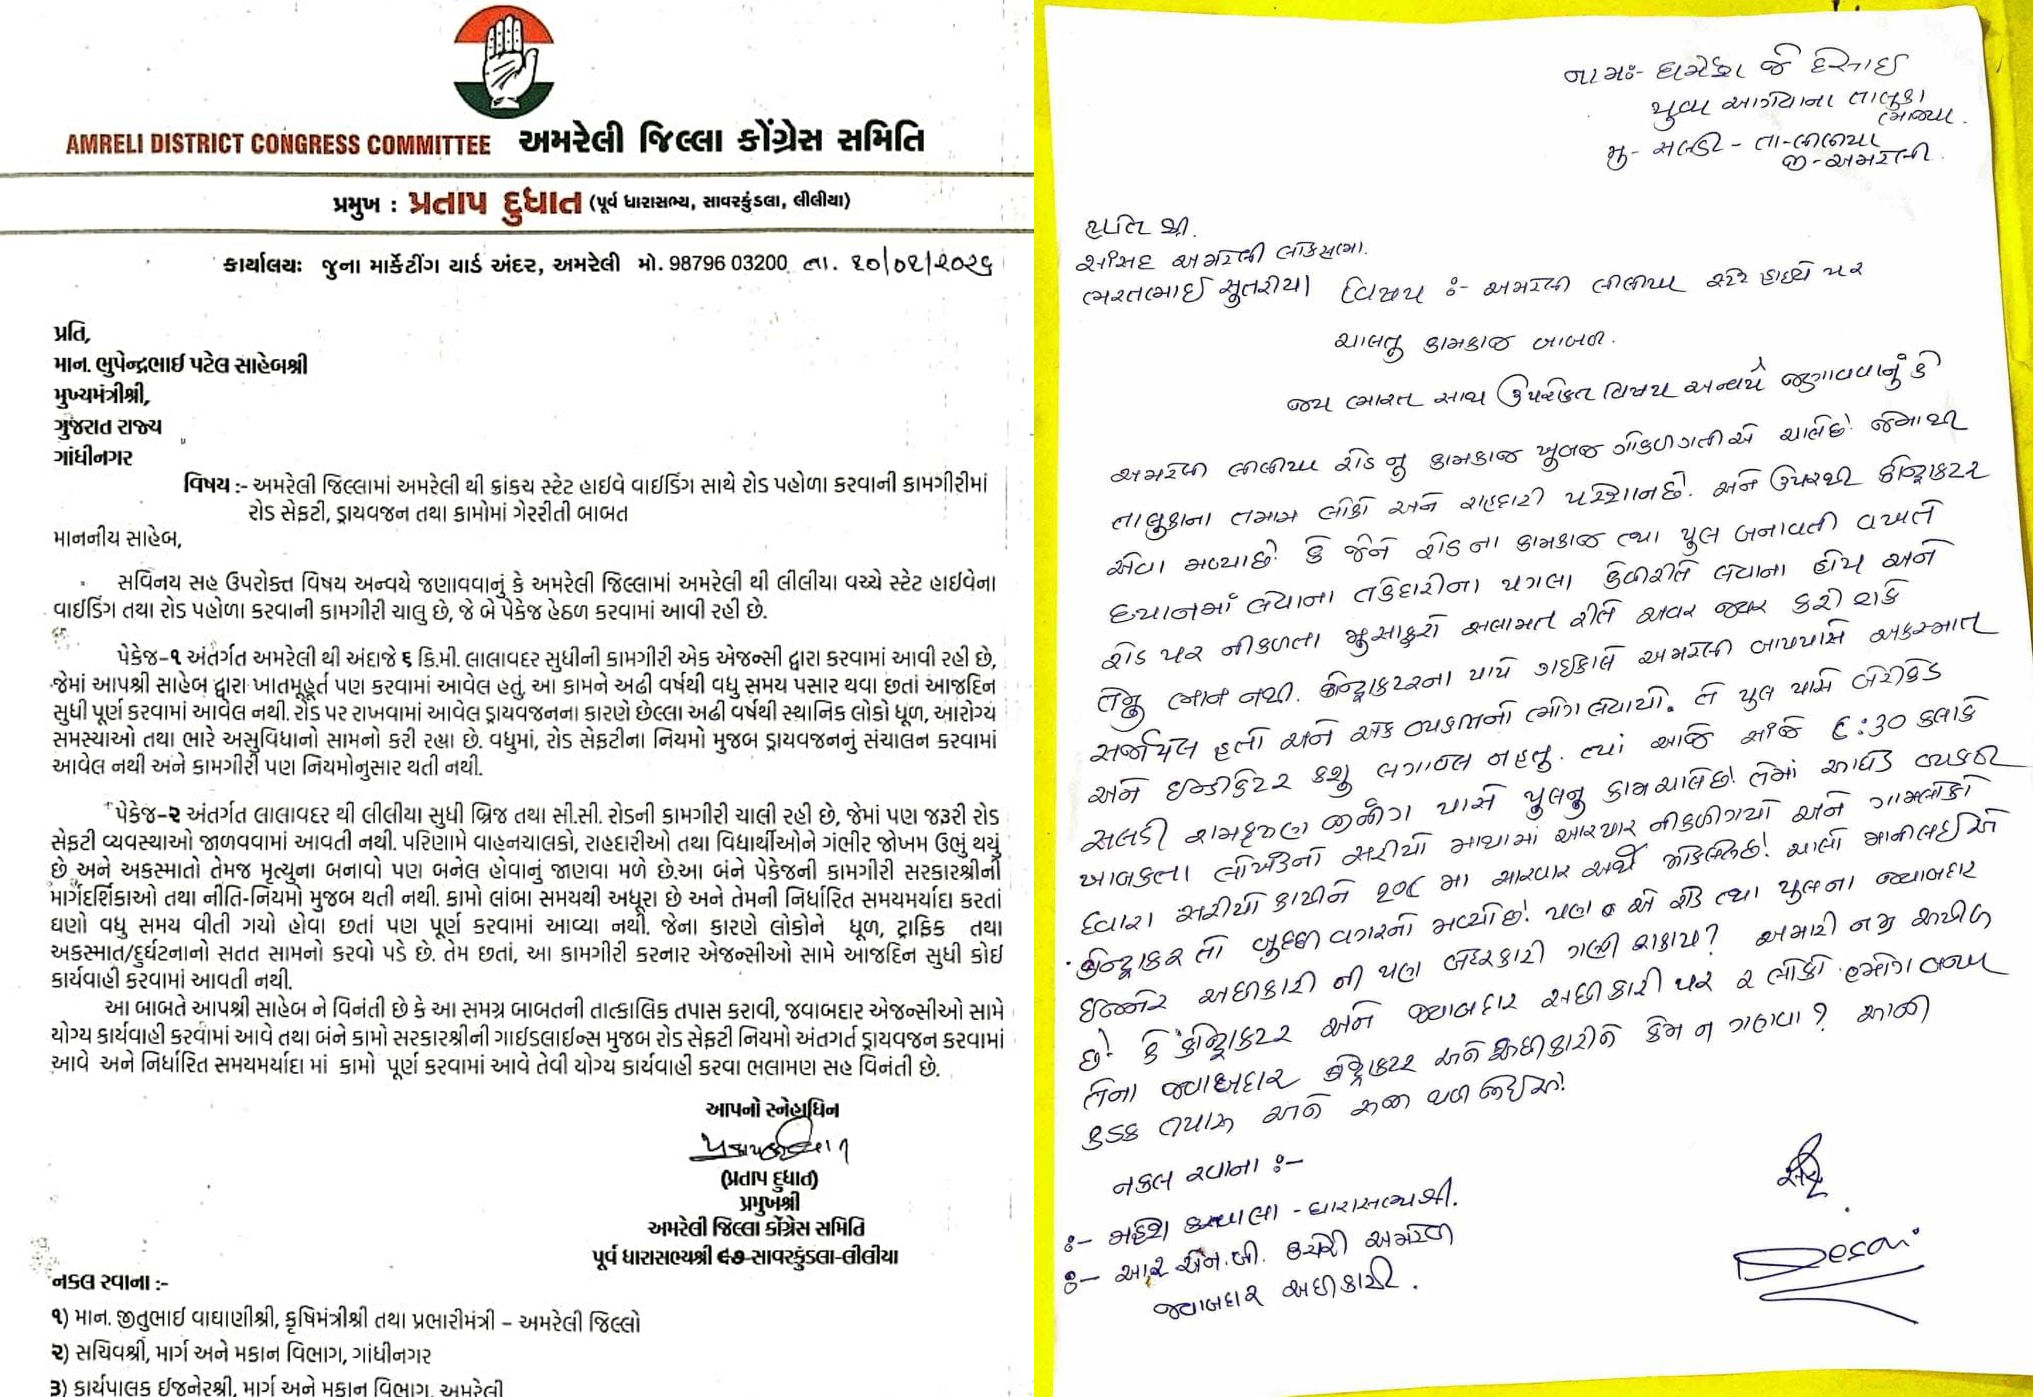 AMRELI DISTRICT CONGRESS COMMITTEE અમરેલી જિલ્લા કોંગ્રેસ સમિતિ
પ્રમુખ : પ્રતાપ દુધાત (પૂર્વ ધારાસભ્ય, સાવરકુંડલા, લીલીયા)
કાર્યાલયઃ જુના માર્કેટીંગ યાર્ડ અંદર, અમરેલી મો. 98796 03200 તા.
પ્રતિ,
માન. ભુપેન્દ્રભાઈ પટેલ સાહેબશ્રી
મુખ્યમંત્રીશ્રી,
ગુજરાત રાજ્ય
ગાંધીનગર
વિષય :- અમરેલી જિલ્લામાં અમરેલી થી ક્રાંકચ સ્ટેટ હાઈવે વાઈડિંગ સાથે રોડ પહોળા કરવાની કામગીરીમાં
રોડ સેફટી, ડ્રાયવજન તથા કામોમાં ગેરરીતી બાબત
માનનીય સાહેબ,
સવિનય સહ ઉપરોક્ત વિષય અન્વયે જણાવવાનું કે અમરેલી જિલ્લામાં અમરેલી થી લીલીયા વચ્ચે સ્ટેટ હાઈવેના
વાઈડિંગ તથા રોડ પહોળા કરવાની કામગીરી ચાલુ છે, જે બે પેકેજ હેઠળ કરવામાં આવી રહી છે.
પેકેજ-૧ અંતર્ગત અમરેલી થી અંદાજે ૬ કિ.મી. લાલાવદર સુધીની કામગીરી એક એજન્સી દ્વારા કરવામાં આવી રહી છે,
જેમાં આપશ્રી સાહેબ દ્વારા ખાતમૂહૂર્ત પણ કરવામાં આવેલ હતું. આ કામને અઢી વર્ષથી વધુ સમય પસાર થવા છતાં આજદિન
સુધી પૂર્ણ કરવામાં આવેલ નથી. રોડ પર રાખવામાં આવેલ ડ્રાયવજનના કારણે છેલ્લા અઢી વર્ષથી સ્થાનિક લોકો ધૂળ, આરોગ્ય
સમસ્યાઓ તથા ભારે અસુવિધાનો સામનો કરી રહ્યા છે. વધુમાં, રોડ સેફટીના નિયમો મુજબ ડ્રાયવજનનું સંચાલન કરવામાં
આવેલ નથી અને કામગીરી પણ નિયમોનુસાર થતી નથી.
પેકેજ-૨ અંતર્ગત લાલાવદર થી લીલીયા સુધી બ્રિજ તથા સી.સી. રોડની કામગીરી ચાલી રહી છે, જેમાં પણ જરૂરી રોડ
સેફટી વ્યવસ્થાઓ જાળવવામાં આવતી નથી. પરિણામે વાહનચાલકો, રાહદારીઓ તથા વિદ્યાર્થીઓને ગંભીર જોખમ ઉભું થયું
છે અને અકસ્માતો તેમજ મૃત્યુના બનાવો પણ બનેલ હોવાનું જાણવા મળે છે.આ બંને પેકેજની કામગીરી સરકારશ્રીની
માર્ગદર્શિકાઓ તથા નીતિ-નિયમો મુજબ થતી નથી. કામો લાંબા સમયથી અધૂરા છે અને તેમની નિર્ધારિત સમયમર્યાદા કરતાં
ઘણો વધુ સમય વીતી ગયો હોવા છતાં પણ પૂર્ણ કરવામાં આવ્યા નથી. જેના કારણે લોકોને ધૂળ, ટ્રાફિક તથા
અકસ્માત/દુર્ઘટનાનો સતત સામનો કરવો પડે છે. તેમ છતાં, આ કામગીરી કરનાર એજન્સીઓ સામે આજદિન સુધી કોઈ
કાર્યવાહી કરવામાં આવતી નથી.
આ બાબતે આપશ્રી સાહેબ ને વિનંતી છે કે આ સમગ્ર બાબતની તાત્કાલિક તપાસ કરાવી, જવાબદાર એજન્સીઓ સામે
યોગ્ય કાર્યવાહી કરવામાં આવે તથા બંને કામો સરકારશ્રીની ગાઈડલાઈન્સ મુજબ રોડ સેફટી નિયમો અંતર્ગત ડ્રાયવજન કરવામાં
આવે અને નિર્ધારિત સમયમર્યાદા માં કામો પૂર્ણ કરવામાં આવે તેવી યોગ્ય કાર્યવાહી કરવા ભલામણ સહ વિનંતી છે.
આપનો સ્નેહાધિન
(પ્રતાપ દુધાત)
પ્રમુખશ્રી
અમરેલી જિલ્લા કોંગ્રેસ સમિતિ
પૂર્વ ધારાસભ્યશ્રી ૯૭-સાવરકુંડલા-લીલીયા
નકલ રવાના :-
૧) માન. જીતુભાઈ વાઘાણીશ્રી, કૃષિમંત્રીશ્રી તથા પ્રભારીમંત્રી – અમરેલી જિલ્લો
૨) સચિવશ્રી, માર્ગ અને મકાન વિભાગ, ગાંધીનગર
૩) કાર્યપાલક ઈજનેરશ્રી, માર્ગ અને મકાન વિભાગ, અમરેલી
નામઃ- ધર્મેશ જે દેસાઈ
યુવા આગેવાન તાલુકા
ભાજપા.
મુ- સલડી - તા-લીલીયા
જી-અમરેલી.
પ્રતિ શ્રી.
સાંસદ અમરેલી લોકસભા.
ભરતભાઈ સુતરીયા વિષય ઃ- અમરેલી લીલીયા સ્ટેટ હાઈવે પર
ચાલતુ કામકાજ બાબત.
જય ભારત સાથ ઉપરોક્ત વિષય અન્વયે જણાવવાનું કે
અમરેલી લીલીયા રોડ નુ કામકાજ ખુબજ ગોકળગતીએ ચાલેછે. જેમાથી
તાલુકાના તમામ લોકો અને રાહદારી પરેશાનછે. અને ઉપરથી કોન્ટ્રાકટર
એવા મળ્યાછે. કે જેને રોડ ના કામકાજ તથા પુલ બનાવતી વખતે
ધ્યાનમાં લેવાના તકેદારીના પગલા કેવીરીતે લેવાના હોય અને
રોડ પર નીકળતા મુસાફરો સલામત રીતે અવર જવર કરી શકે
તેનુ ભાન નથી. કોન્ટ્રાકટરના પાપે ગઈકાલે અમરેલી બાયપાસે અકસ્માત
સર્જાયેલ હતો અને એક વ્યકિતનો ભોગ લેવાયો. તે પુલ પાસે બેરીકેડ
અને ઈન્ડીકેટર કશુ લગાવેલ નહતુ. ત્યાં આજે સાંજે ૬:૩૦ કલાકે
સલડી રામકૃષ્ણ જીનીંગ પાસે પુલનુ કામ ચાલેછે. તેમાં વ્યકતી
ખાબકતા લોખંડનો સરીયો માથામાં આરપાર નીકળીગયો અને ગામલોકો
દ્વારા સરીયો કાપીને ૧૦૮ મા સારવાર અર્થે મોકલેલછે. ચાલો માનીલઈએ
કોન્ટ્રાકટર તો બુદ્ધી વગરનો મળ્યોછે. પણ એ રોડ તથા પુલના જવાબદાર
ઈજનેર અધીકારી ની પણ બેદરકારી ગણી શકાય? અમારી નમ્ર અપીલ
છે કે કોન્ટ્રાકટર અને જવાબદાર અધીકારી પર ૨ લોકો ભોગ બન્યા
તેના જવાબદાર કોન્ટ્રાકટર અને અધીકારીને કેમ ન ગણવા? આની
કડક તપાસ અને સજા થવી જોઈએ.
નકલ રવાના ઃ-
ઃ- મહેશ કસવાલા - ધારાસભ્યશ્રી.
ઃ- આર એન.બી. કચેરી અમરેલી
જવાબદાર અધીકારી.